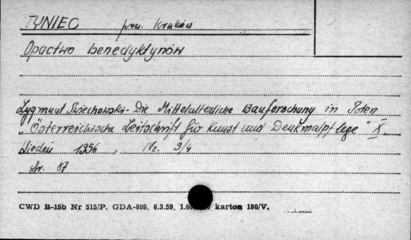 TYNIEC pow. Kraków
Opactwo benedyktynów
Zygmunt Świechowski - Die Mittelalterliche Bauforschung in Polen
„Österreichische Zeitschrift für Kunst und Denkmalpflege" X,
Wiedeń 1956, Nr. 3/4
str. 87
CWD B-15b Nr 515/P. GDA-809. 6.2.59. 1.0 karton 180/V.